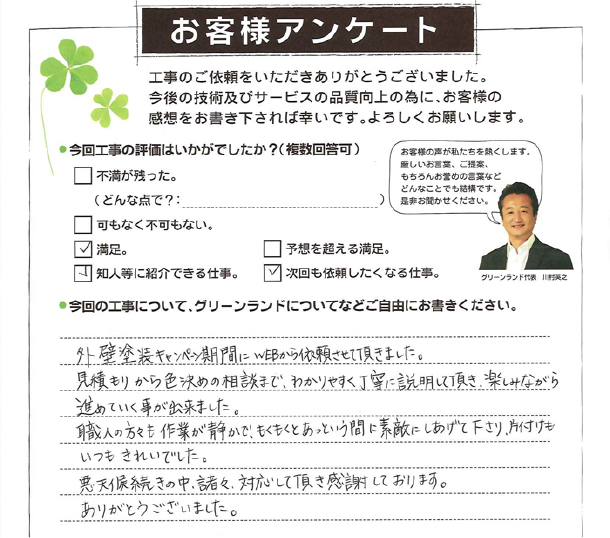 お客様アンケート
工事のご依頼をいただきありがとうございました。
今後の技術及びサービスの品質向上の為に、お客様の
感想をお書き下されば幸いです。よろしくお願いします。
●今回工事の評価はいかがでしたか？(複数回答可)
不満が残った。
(どんな点で？:)
可もなく不可もない。
満足。
予想を超える満足。
知人等に紹介できる仕事。
次回も依頼したくなる仕事。
お客様の声が私たちを熱くします。
厳しいお言葉、ご提案、
もちろんお誉めの言葉など
どんなことでも結構です。
是非お聞かせください。
グリーンランド代表 川村英之
●今回の工事について、グリーンランドについてなどご自由にお書きください。
外壁塗装キャンペーン期間にWEBから依頼させて頂きました。
見積もりから色決めの相談まで、わかりやすく丁寧に説明して頂き、楽しみながら
進めていく事が出来ました。
職人の方々も作業が静かで、もくもくとあっという間に素敵にしあげて下さり、片付けも
いつもきれいでした。
悪天候続きの中、諸々、対応して頂き感謝しております。
ありがとうございました。